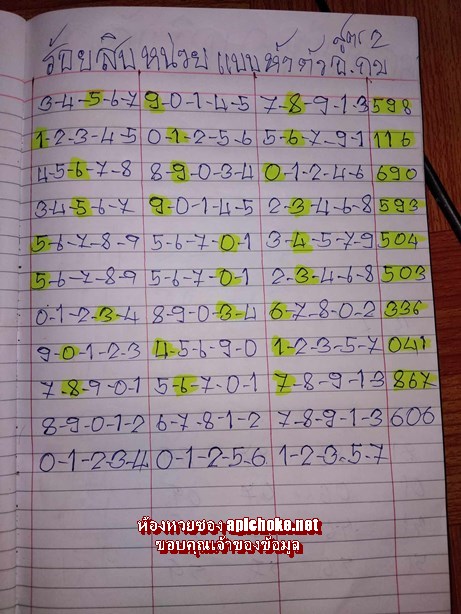 สูตร 2
ร้อยสิบหน่วย แบบห้าตัว อ.กบ
3-4-5-6-7 9-0-1-4-5 7-8-9-1-3 598
1-2-3-4-5 0-1-2-5-6 5-6-7-9-1 116
4-5-6-7-8 8-9-0-3-4 0-1-2-4-6 690
3-4-5-6-7 9-0-1-4-5 2-3-4-6-8 593
5-6-7-8-9 5-6-7-0-1 3-4-5-7-9 504
5-6-7-8-9 5-6-7-0-1 2-3-4-6-8 503
0-1-2-3-4 8-9-0-3-4 6-7-8-0-2 336
9-0-1-2-3 4-5-6-9-0 1-2-3-5-7 041
7-8-9-0-1 5-6-7-0-1 7-8-9-1-3 867
8-9-0-1-2 6-7-8-1-2 7-8-9-1-3 606
0-1-2-3-4 0-1-2-5-6 1-2-3-5-7
ห้องหวยซอง apichoke.net
ขอบคุณเจ้าของข้อมูล